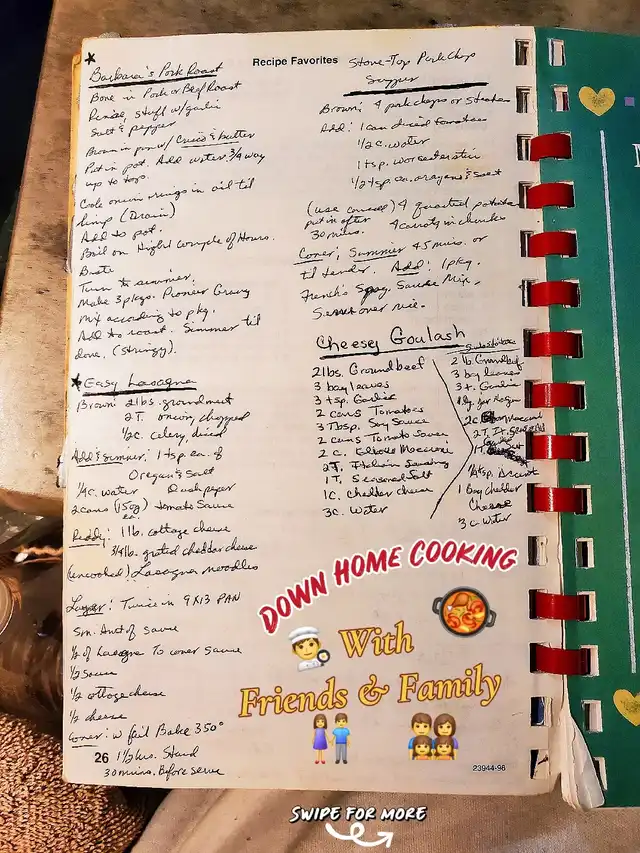 Recipe Favorites
Barbara's Pork Roast
Bone in Pork or Beef Roast
Rinse, stuff w/garlic
Salt & pepper
Brown in pan w/ Crisco & butter
Put in pot. Add water 3/4 way
up to top.
Cook onion rings in oil til
limp (Drain)
Add to pot.
Boil on High couple of Hours.
Baste
Turn to simmer.
Make 3 pkgs. Pioneer Gravy
Mix according to pkg.
Add to roast. Simmer til
done. (stringy).
Easy Lasagne
Brown: 2 lbs. ground meat
2 T. onion, chopped
1/2 c. celery, diced
Add & simmer: 1 tsp ea. of
Oregano & Salt
1/4 c. water Dash pepper
2 cans (15 oz) tomato Sauce
ea.
Ready: 1 lb. cottage cheese
3/4 lb. grated cheddar cheese
(uncooked) Lasagna noodles
Layer: Twice in 9X13 PAN
Sm. Amt of sauce
1/2 of Lasagne To cover sauce
1/2 sauce
1/2 cottage cheese
1/2 cheese
Cover: w foil Bake 350°
1 1/2 hrs. Stand
30 mins. Before serve
26
Stove-Top Pork Chop
Supper
Brown: 4 pork chops or steaks
Add: 1 can diced tomatoes
1/2 c. water
1 tsp. worcestershire
1/2 tsp. ea. oregano & salt
(use canned) 4 quartered potatoes
put in after 4 carrots in chunks
30 mins.
Cover; Simmer 45 mins. or
til tender. Add: 1 pkg.
French's Spag. Sauce Mix.
Serve over rice.
Cheesey Goulash
2 lbs. Ground beef
3 bay leaves
3 tsp. Garlic
2 cans Tomatoes
3 Tbsp. Soy Sauce
2 cans Tomato Sauce
2 c. Elbow Macaroni
2 T. Italian Seasoning
1 T. Seasoned Salt
1 c. cheddar cheese
3 c. Water
2 lb. Ground beef
3 bay leaves
3 t. Garlic
1 Bag Cheddar
Cheese
3 c. Water
DOWN HOME COOKING
With
Friends & Family
23944-96
SWIPE FOR MORE